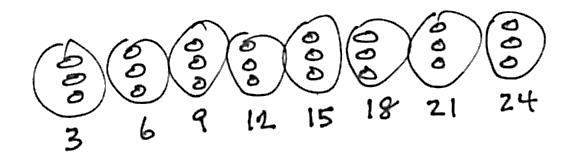 3 6 9 12 15 18 21 24